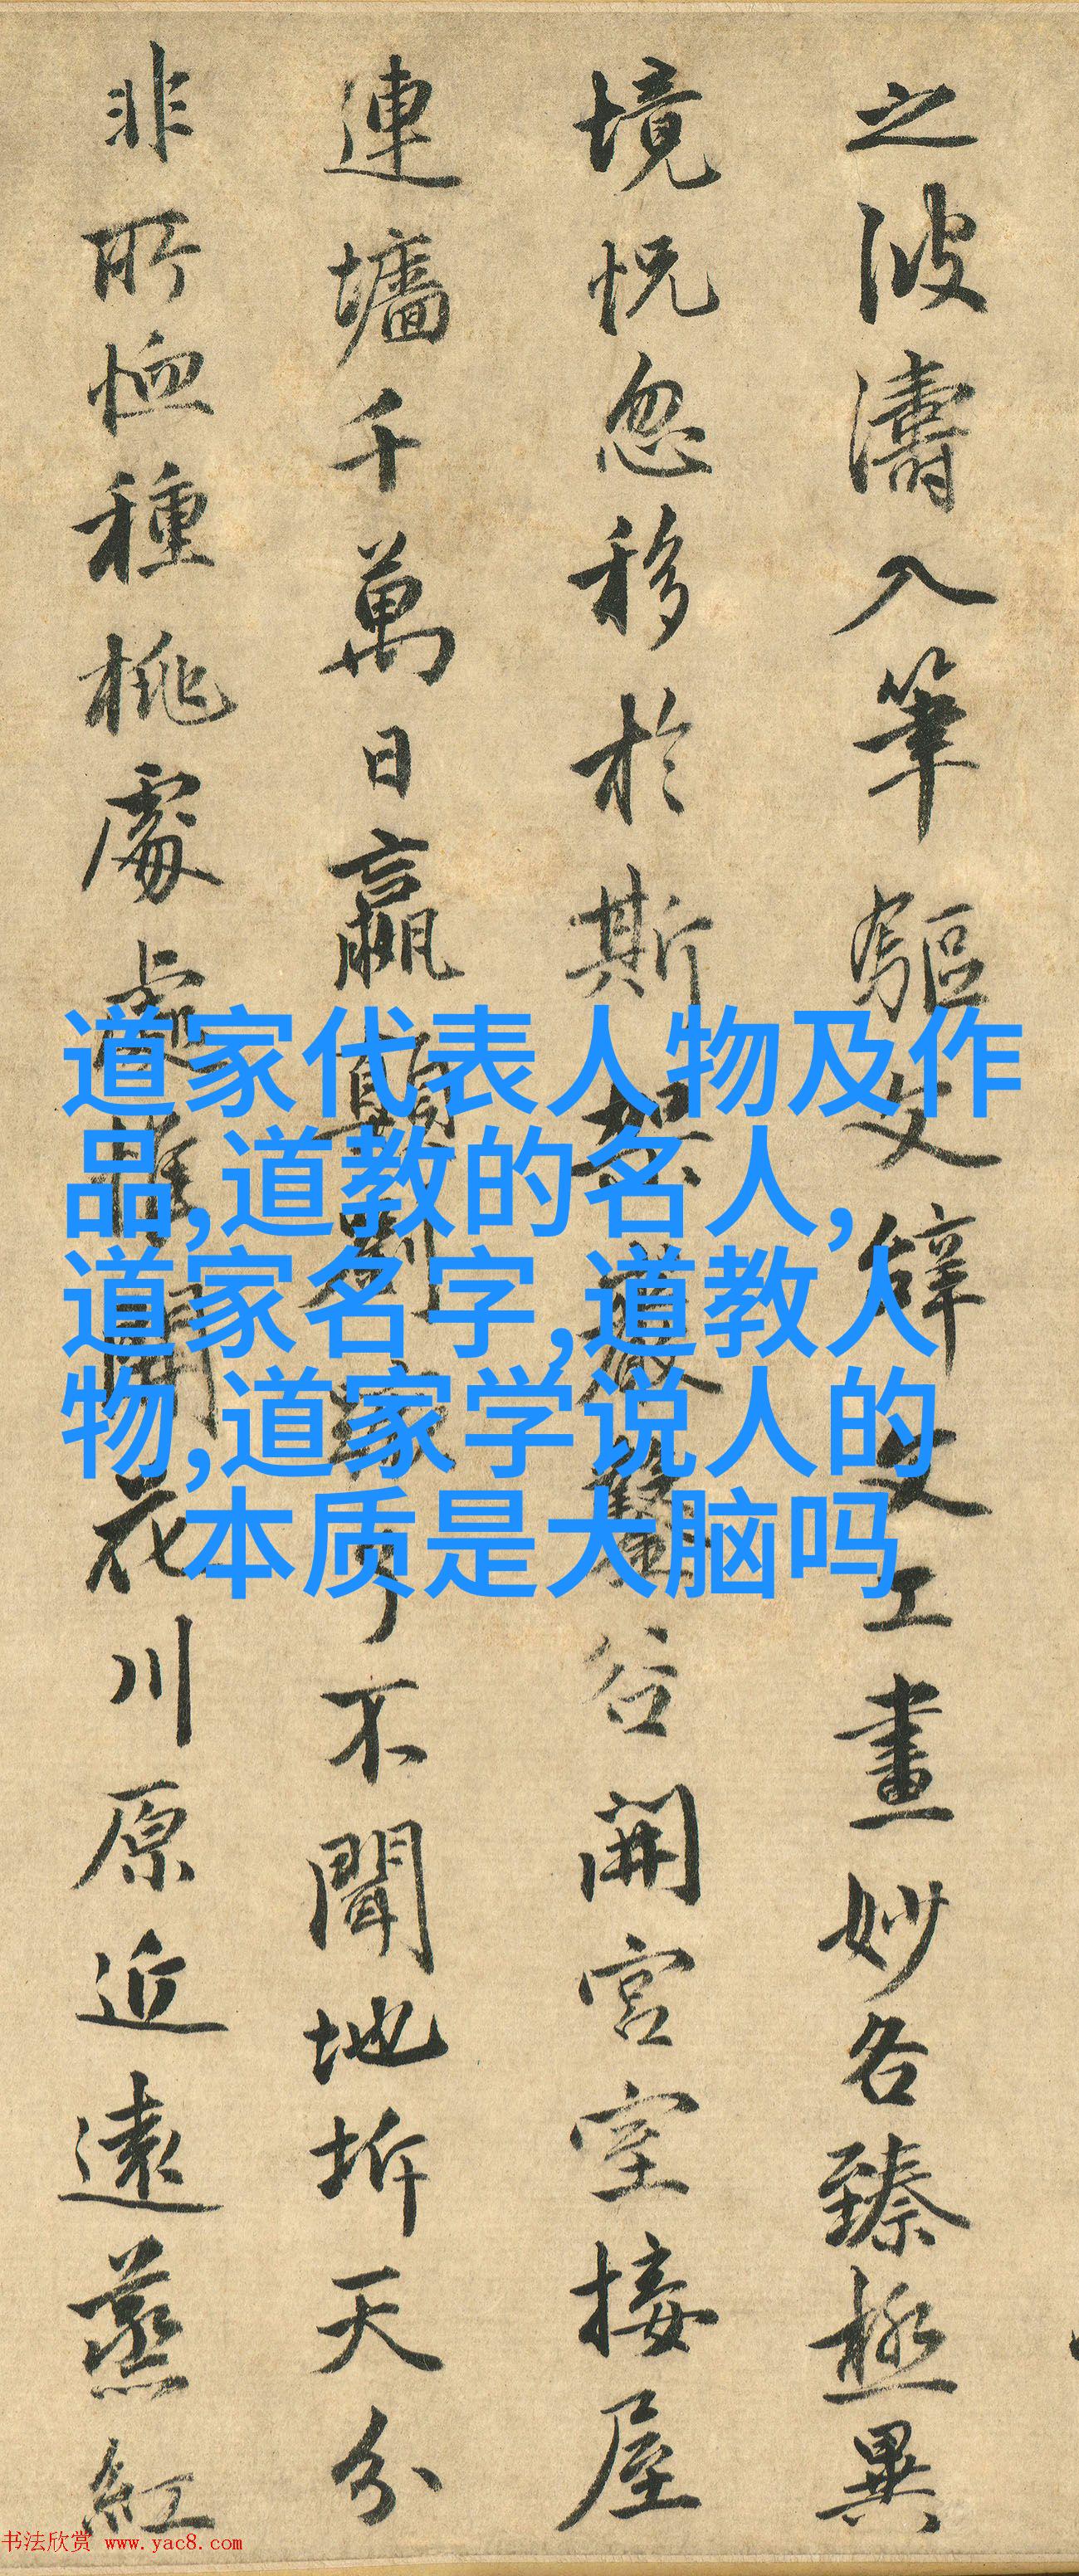 之波濤入筆驅文辭文工畫妙各臻極異
境恍忽移於斯架巖鑿谷開宮室接屋
連墻千萬日嬴顛劉蹶了不聞地坼天分
非所恤種桃處處惟開花川原近遠蒸紅
道家代表人物及作
品,道教的名人,
道家名字,道教人
物,道家学说人的
本质是大脑吗
书法欣赏 www.yac8.com